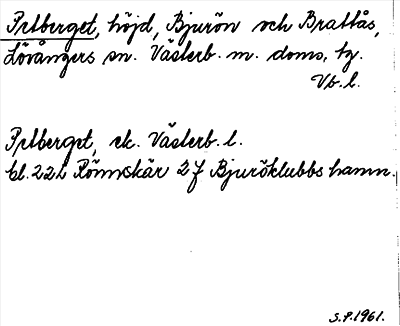 Prtberget, höjd, Bjurön och Brattås,
Lövångers sn. Västerb. m. doms. tg.
Vb. l.
Prtberget, ek. Västerb. l.
bl. 22L Rönnskär 2 f Bjuröklubbs hamn.
S.P.1961.